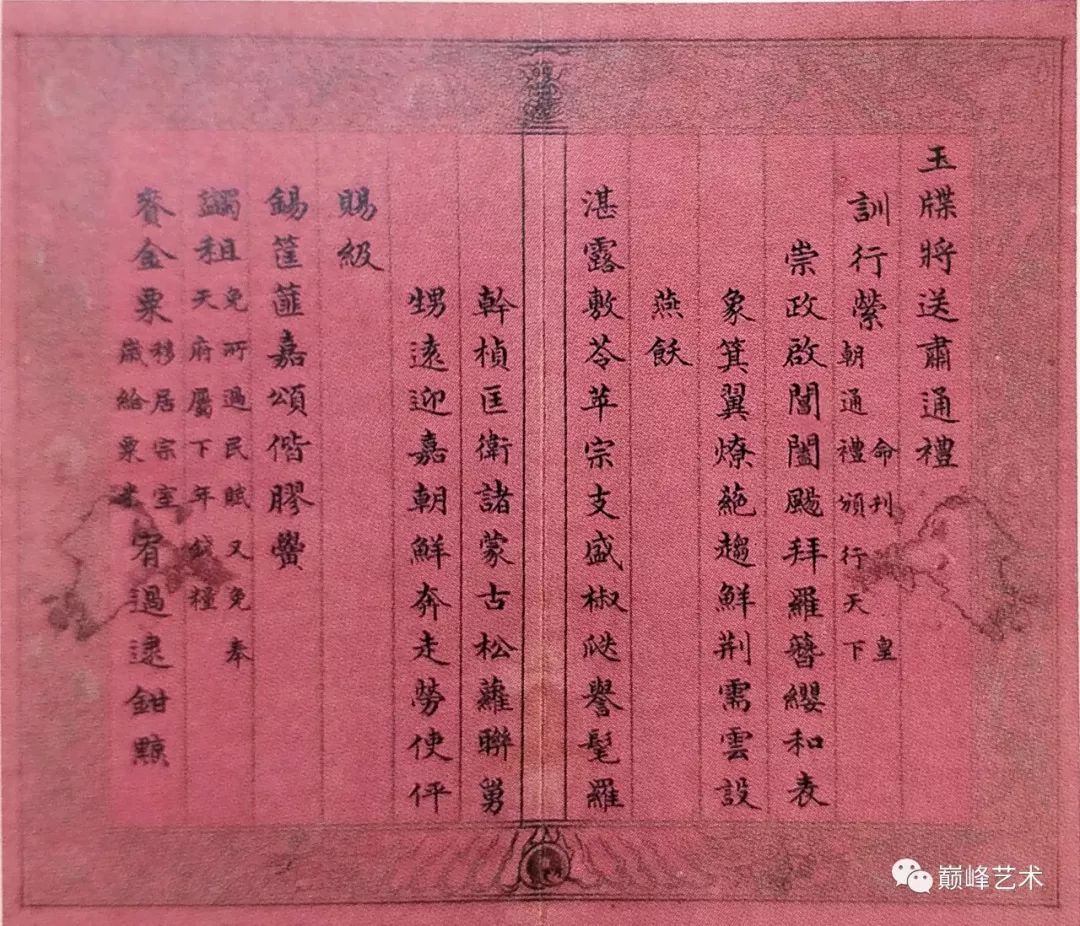 玉牒將送肅通禮
訓行縈命刊皇朝通禮頒行天下
崇政啟閶闔颺拜羅簪纓和表
象箕翼燎蕝趨鮮荆需雲設
燕飫
湛露敷苓苹宗支盛椒瓞譽髦羅
幹楨匡衛諸蒙古松蘿聯舅
甥遠迎嘉朝鮮奔走勞使伻
賜級
錫筐篚嘉頌偕膠黌
蠲租免所過民賦又免奉天府屬下年錢糧
賚金粟移居宗室歲給粟米宥過逮鉗黥
巅峰艺术